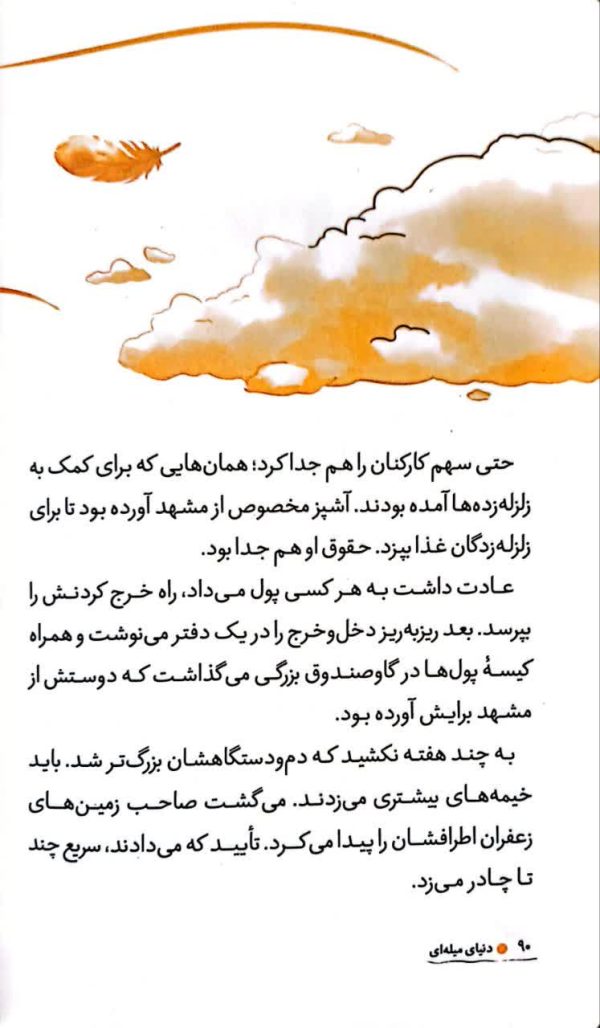 حتی سهم کارکنان را هم جدا کرد؛ همان‌هایی که برای کمک به
زلزله‌زده‌ها آمده بودند. آشپز مخصوص از مشهد آورده بود تا برای
زلزله‌زدگان غذا بپزد. حقوق او هم جدا بود.
عادت داشت به هر کسی پول می‌داد، راه خرج کردنش را
بپرسد. بعد ریزبه‌ریز دخل‌وخرج را در یک دفتر می‌نوشت و همراه
کیسهٔ پول‌ها در گاوصندوق بزرگی می‌گذاشت که دوستش از
مشهد برایش آورده بود.
به چند هفته نکشید که دم‌ودستگاهشان بزرگ‌تر شد. باید
خیمه‌های بیشتری می‌زدند. می‌گشت صاحب زمین‌های
زعفران اطرافشان را پیدا می‌کرد. تأیید که می‌دادند، سریع چند
تا چادر می‌زد.
۹۰ ● دنیای میله‌ای